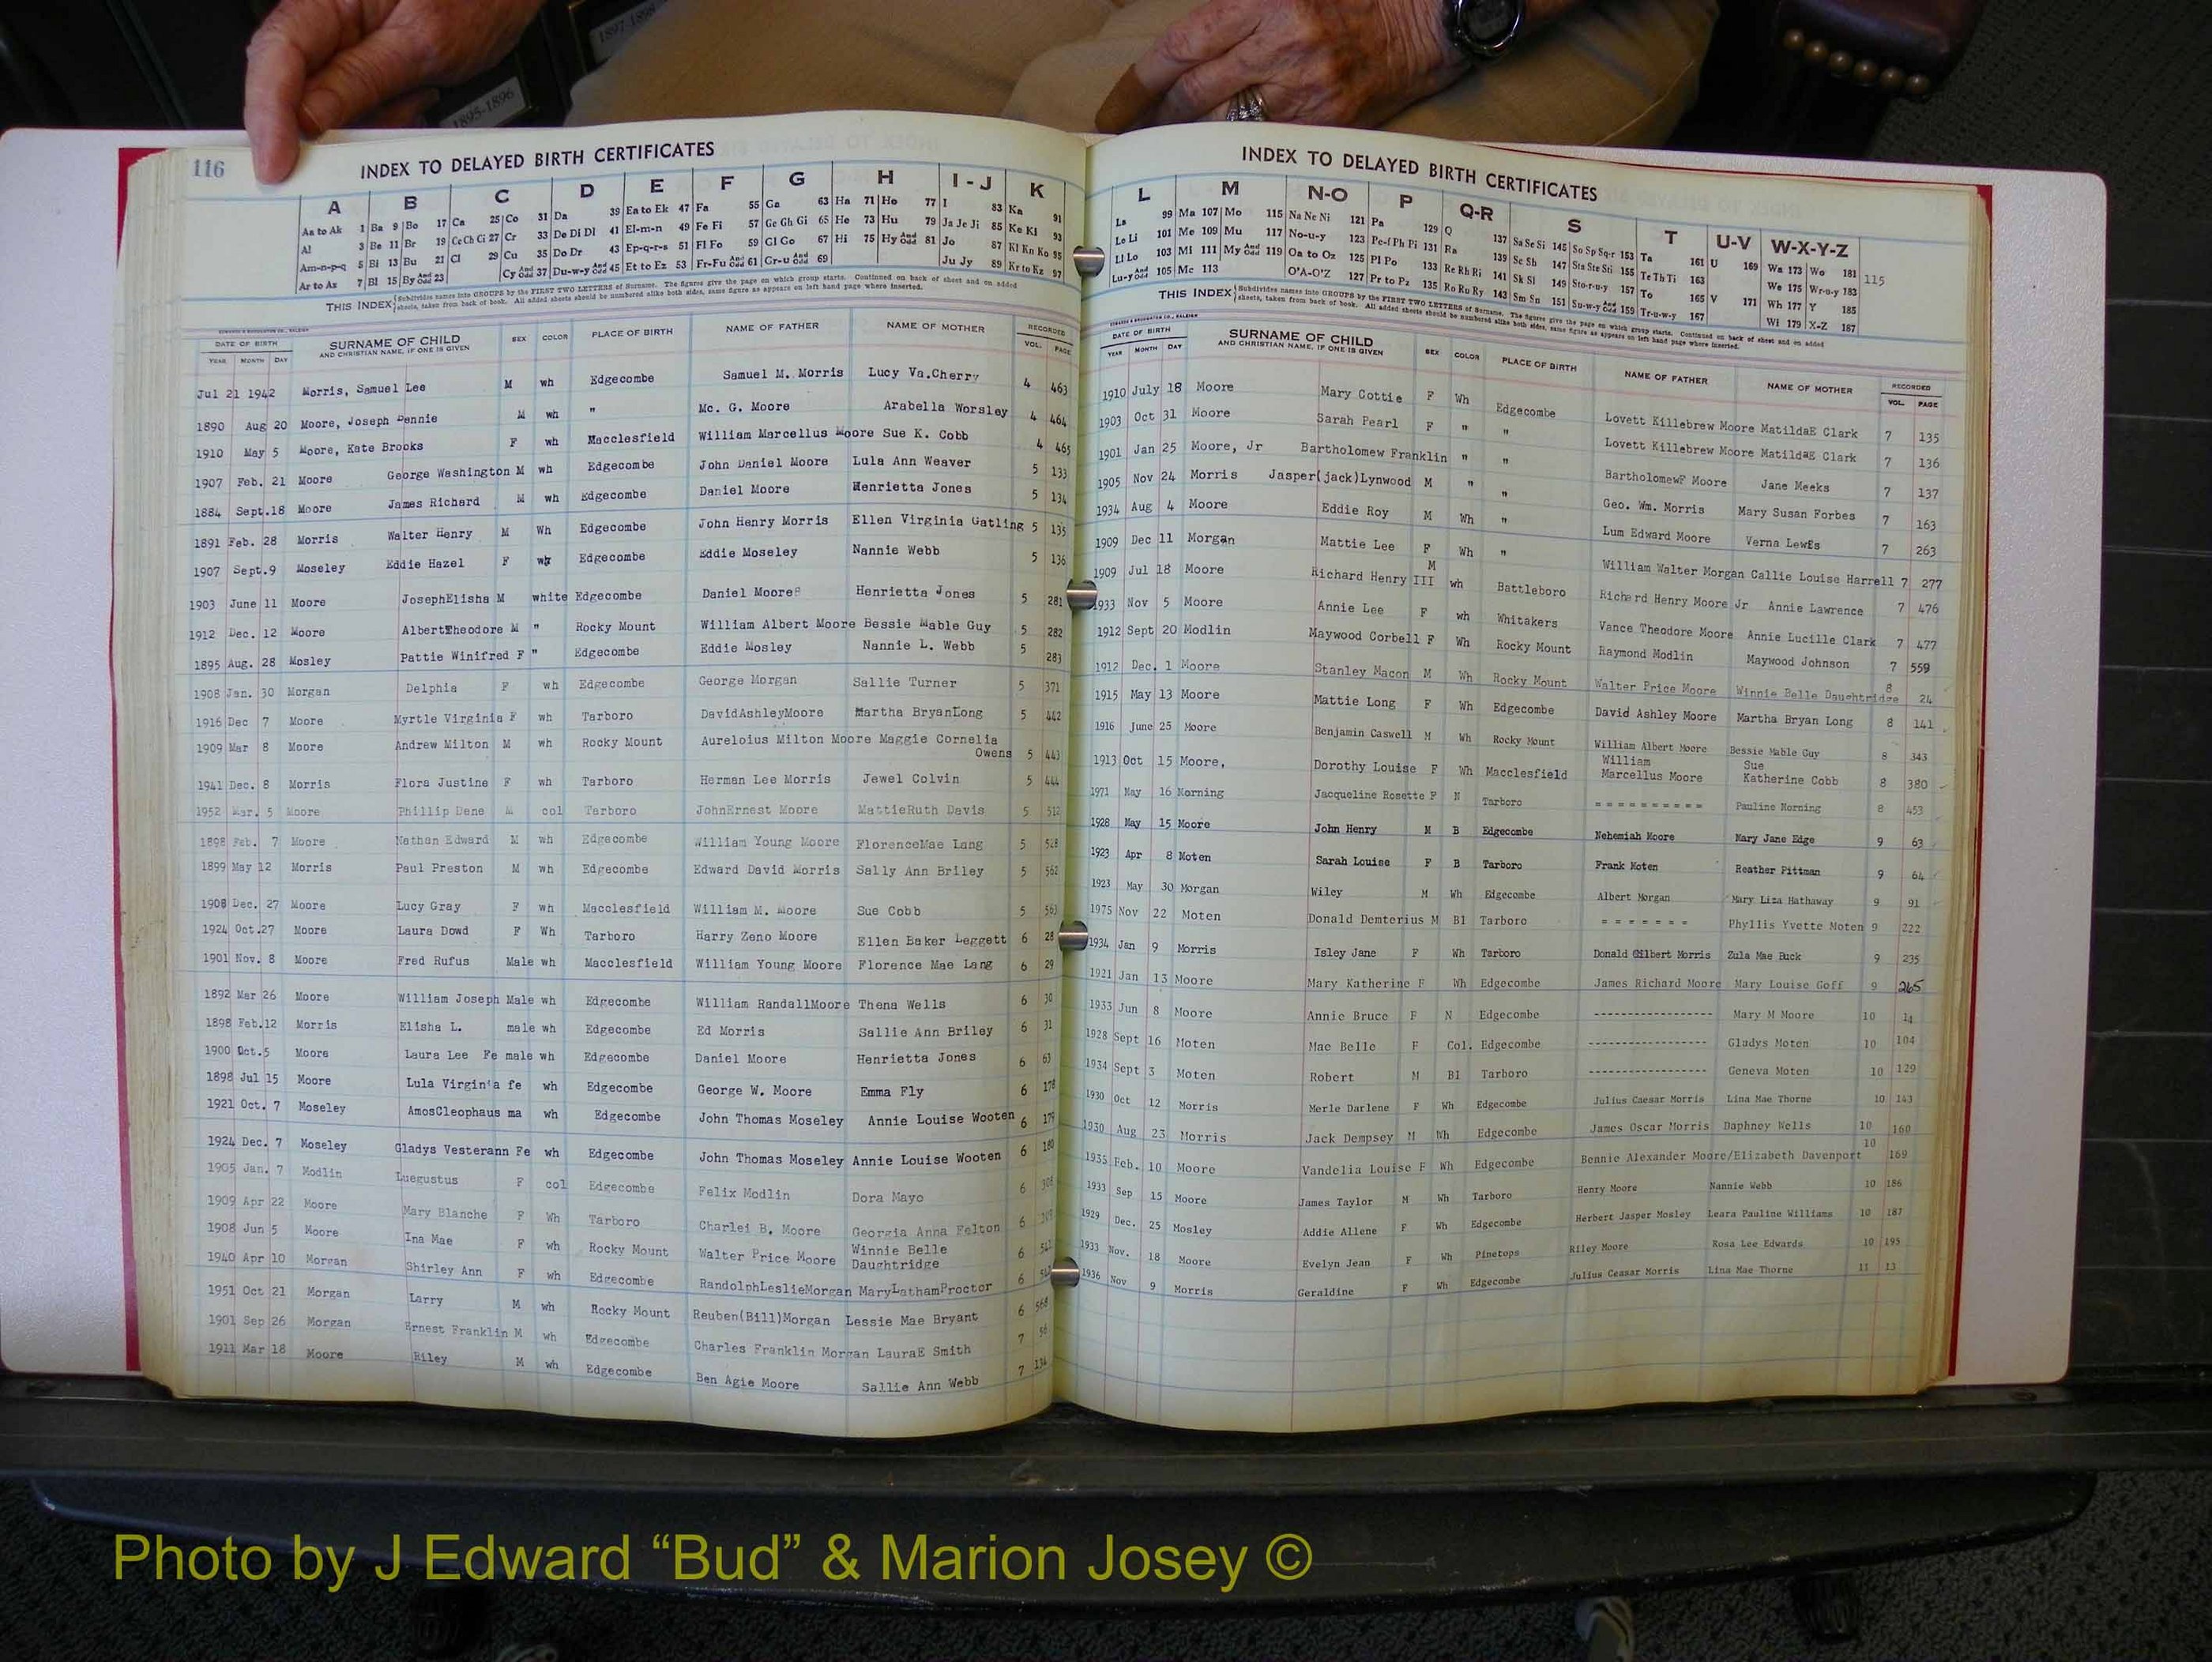 1897-1898
1895-1896
116
INDEX TO DELAYED BIRTH CERTIFICATES
A B C D E F G H I - J K
Aa to Ak 1 Ba 9 Bo 17 Ca 25 Co 31 Da 39 Ea to Ek 47 Fa 55 Ga 63 Ha 71 Ho 77 I 83 Ka 91
Al 3 Be 11 Br 19 Ce Ch Ci 27 Cr 33 De Di Dl 41 El-m-n 49 Fe Fi 57 Ge Gh Gi 65 He 73 Hu 79 Ja Je Ji 85 Ke Kl 93
Am-n-p-q 5 Bi 13 Bu 21 Cl 29 Cu 35 Do Dr 43 Ep-q-r-s 51 Fl Fo 59 Gl Go 67 Hi 75 Hy And Odd 81 Jo 87 Kl Kn Ko 95
Ar to Az 7 Bl 15 By And Odd 23 Cy And Odd 37 Du-w-y And Odd 45 Et to Ez 53 Fr-Fu And Odd 61 Gr-u And Odd 69 Ju Jy 89 Kr to Kz 97
THIS INDEX Subdivides names into GROUPS by the FIRST TWO LETTERS of Surname. The figures give the page on which group starts. Continued on back of sheet and on added
sheets, taken from back of book. All added sheets should be numbered alike both sides, same figure as appears on left hand page where inserted.
DATE OF BIRTH SURNAME OF CHILD SEX COLOR PLACE OF BIRTH NAME OF FATHER NAME OF MOTHER RECORDED
YEAR MONTH DAY AND CHRISTIAN NAME, IF ONE IS GIVEN VOL. PAGE
Jul 21 1942 Morris, Samuel Lee M wh Edgecombe Samuel M. Morris Lucy Va.Cherry 4 463
1890 Aug 20 Moore, Joseph Dennie M wh " Mc. G. Moore Arabella Worsley 4 464
1910 May 5 Moore, Kate Brooks F wh Macclesfield William Marcellus Moore Sue K. Cobb 4 465
1907 Feb. 21 Moore George Washington M wh Edgecombe John Daniel Moore Lula Ann Weaver 5 133
1884 Sept.18 Moore James Richard M wh Edgecombe Daniel Moore Henrietta Jones 5 134
1891 Feb. 28 Morris Walter Henry M Wh Edgecombe John Henry Morris Ellen Virginia Gatling 5 135
1907 Sept.9 Moseley Eddie Hazel F wh Edgecombe Eddie Moseley Nannie Webb 5 136
1903 June 11 Moore JosephElisha M white Edgecombe Daniel Moore Henrietta Jones 5 281
1912 Dec. 12 Moore AlbertTheodore M " Rocky Mount William Albert Moore Bessie Mable Guy 5 282
1895 Aug. 28 Mosley Pattie Winifred F " Edgecombe Eddie Mosley Nannie L. Webb 5 283
1908 Jan. 30 Morgan Delphia F wh Edgecombe George Morgan Sallie Turner 5 371
1916 Dec 7 Moore Myrtle Virginia F wh Tarboro DavidAshleyMoore Martha BryanLong 5 442
1909 Mar 8 Moore Andrew Milton M wh Rocky Mount Aureloius Milton Moore Maggie Cornelia
Owens 5 443
1941 Dec. 8 Morris Flora Justine F wh Tarboro Herman Lee Morris Jewel Colvin 5 444
1952 Mar. 5 Moore Phillip Dene M col Tarboro JohnErnest Moore MattieRuth Davis 5 512
1898 Feb. 7 Moore Nathan Edward M wh Edgecombe William Young Moore FlorenceMae Lang 5 528
1899 May 12 Morris Paul Preston M wh Edgecombe Edward David Morris Sally Ann Briley 5 562
1908 Dec. 27 Moore Lucy Gray F wh Macclesfield William M. Moore Sue Cobb 5 563
1924 Oct.27 Moore Laura Dowd F Wh Tarboro Harry Zeno Moore Ellen Baker Leggett 6 28
1901 Nov. 8 Moore Fred Rufus Male wh Macclesfield William Young Moore Florence Mae Lang 6 29
1892 Mar 26 Moore William Joseph Male wh Edgecombe William RandallMoore Thena Wells 6 30
1898 Feb.12 Morris Elisha L. male wh Edgecombe Ed Morris Sallie Ann Briley 6 31
1900 Oct.5 Moore Laura Lee Fe male wh Edgecombe Daniel Moore Henrietta Jones 6 63
1898 Jul 15 Moore Lula Virginia fe wh Edgecombe George W. Moore Emma Fly 6 178
1921 Oct. 7 Moseley AmosCleophaus ma wh Edgecombe John Thomas Moseley Annie Louise Wooten 6 179
1924 Dec. 7 Moseley Gladys Vesterann Fe wh Edgecombe John Thomas Moseley Annie Louise Wooten 6 180
1905 Jan. 7 Modlin Luegustus F col Edgecombe Felix Modlin Dora Mayo 6
1909 Apr 22 Moore Mary Blanche F Wh Tarboro Charlei B. Moore Georgia Anna Felton 6
1908 Jun 5 Moore Ina Mae F wh Rocky Mount Walter Price Moore Winnie Belle
Daughtridge 6
1940 Apr 10 Morgan Shirley Ann F wh Edgecombe RandolphLeslieMorgan MaryLathamProctor 6
1951 Oct 21 Morgan Larry M wh Rocky Mount Reuben(Bill)Morgan Lessie Mae Bryant 6 568
1901 Sep 26 Morgan Ernest Franklin M wh Edgecombe Charles Franklin Morgan LauraE Smith 7 56
1911 Mar 18 Moore Riley M wh Edgecombe Ben Agie Moore Sallie Ann Webb 7 134
INDEX TO DELAYED BIRTH CERTIFICATES
L M N-O P Q-R S T U-V W-X-Y-Z
La 99 Ma 107 Mo 115 Na Ne Ni 121 Pa 129 Q 137 Sa Se Si 145 So Sp Sq-r 153 Ta 161 U 169 Wa 173 Wo 181
Le Li 101 Me 109 Mu 117 No-u-y 123 Pe-f Ph Pi 131 Ra 139 Sc Sh 147 Sta Ste Sti 155 Te Th Ti 163 We 175 Wr-u-y 183 115
Ll Lo 103 Mi 111 My And Odd 119 Oa to Oz 125 Pl Po 133 Re Rh Ri 141 Sk Sl 149 Sto-r-u-y 157 To 165 V 171 Wh 177 Y 185
Lu-y And Odd 105 Mc 113 O'A-O'Z 127 Pr to Pz 135 Ro Ru Ry 143 Sm Sn 151 Su-w-y And Odd 159 Tr-u-w-y 167 Wi 179 X-Z 187
THIS INDEX Subdivides names into GROUPS by the FIRST TWO LETTERS of Surname. The figures give the page on which group starts. Continued on back of sheet and on added
sheets, taken from back of book. All added sheets should be numbered alike both sides, same figure as appears on left hand page where inserted.
DATE OF BIRTH SURNAME OF CHILD SEX COLOR PLACE OF BIRTH NAME OF FATHER NAME OF MOTHER RECORDED
YEAR MONTH DAY AND CHRISTIAN NAME, IF ONE IS GIVEN VOL. PAGE
1910 July 18 Moore Mary Cottie F Wh Edgecombe Lovett Killebrew Moore MatildaE Clark 7 135
1903 Oct 31 Moore Sarah Pearl F " " Lovett Killebrew Moore MatildaE Clark 7 136
1901 Jan 25 Moore, Jr Bartholomew Franklin " " BartholomewF Moore Jane Meeks 7 137
1905 Nov 24 Morris Jasper(jack)Lynwood M " " Geo. Wm. Morris Mary Susan Forbes 7 163
1934 Aug 4 Moore Eddie Roy M Wh " Lum Edward Moore Verna Lewis 7 263
1909 Dec 11 Morgan Mattie Lee F Wh " William Walter Morgan Callie Louise Harrell 7 277
1909 Jul 18 Moore Richard Henry III M wh Battleboro Richard Henry Moore Jr Annie Lawrence 7 476
1933 Nov 5 Moore Annie Lee F wh Whitakers Vance Theodore Moore Annie Lucille Clark 7 477
1912 Sept 20 Modlin Maywood Corbell F Wh Rocky Mount Raymond Modlin Maywood Johnson 7 559
1912 Dec. 1 Moore Stanley Macon M Wh Rocky Mount Walter Price Moore Winnie Belle Daughtridge 8 24
1915 May 13 Moore Mattie Long F Wh Edgecombe David Ashley Moore Martha Bryan Long 8 141
1916 June 25 Moore Benjamin Caswell M Wh Rocky Mount William Albert Moore Bessie Mable Guy 8 343
William Sue
1913 Oct 15 Moore, Dorothy Louise F Wh Macclesfield Marcellus Moore Katherine Cobb 8 380
1971 May 16 Morning Jacqueline Rosette F N Tarboro = = = = = = = = = = Pauline Morning 8 453
1928 May 15 Moore John Henry M B Edgecombe Nehemiah Moore Mary Jane Edge 9 63
1923 Apr 8 Moten Sarah Louise F B Tarboro Frank Moten Reather Pittman 9 64
1923 May 30 Morgan Wiley M Wh Edgecombe Albert Morgan Mary Liza Hathaway 9 91
1975 Nov 22 Moten Donald Demterius M Bl Tarboro = = = = = = = Phyllis Yvette Moten 9 222
1934 Jan 9 Morris Isley Jane F Wh Tarboro Donald Gilbert Morris Zula Mae Buck 9 235
1921 Jan 13 Moore Mary Katherine F Wh Edgecombe James Richard Moore Mary Louise Goff 9 265
1933 Jun 8 Moore Annie Bruce F N Edgecombe ----------------- Mary M Moore 10 14
1928 Sept 16 Moten Mae Belle F Col. Edgecombe ----------------- Gladys Moten 10 104
1934 Sept 3 Moten Robert M Bl Tarboro ---------------- Geneva Moten 10 129
1930 Oct 12 Morris Merle Darlene F Wh Edgecombe Julius Caesar Morris Lina Mae Thorne 10 143
1930 Aug 23 Morris Jack Dempsey M Wh Edgecombe James Oscar Morris Daphney Wells 10 160
1935 Feb. 10 Moore Vandelia Louise F Wh Edgecombe Bennie Alexander Moore/Elizabeth Davenport 10 169
1933 Sep 15 Moore James Taylor M Wh Tarboro Henry Moore Nannie Webb 10 186
1929 Dec. 25 Mosley Addie Allene F Wh Edgecombe Herbert Jasper Mosley Leara Pauline Williams 10 187
1933 Nov. 18 Moore Evelyn Jean F Wh Pinetops Riley Moore Rosa Lee Edwards 10 195
1936 Nov 9 Morris Geraldine F Wh Edgecombe Julius Ceasar Morris Lina Mae Thorne 11 13
Photo by J Edward “Bud” & Marion Josey ©